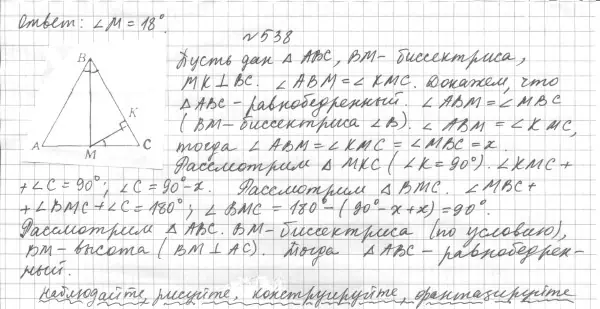 Ответ: ∠M = 18°.
№538
B
K
A
M
C
Пусть дан △ ABC, BM - биссектриса,
MK ⊥ BC. ∠ABM = ∠KMC. Докажем, что
△ABC - равнобедренный. ∠ABM = ∠MBC
(BM - биссектриса ∠B). ∠ABM = ∠KMC,
тогда ∠ABM = ∠KMC = ∠MBC = x.
Рассмотрим △ MKC (∠K = 90°). ∠KMC +
+ ∠C = 90°; ∠C = 90° - x. Рассмотрим △ BMC. ∠MBC +
+ ∠BMC + ∠C = 180°; ∠BMC = 180° - (90° - x + x) = 90°.
Рассмотрим △ ABC. BM - биссектриса (по условию),
BM - высота (BM ⊥ AC). Тогда △ ABC - равнобедрен-
ный.
наблюдайте, рисуйте, конструируйте, фантазируйте